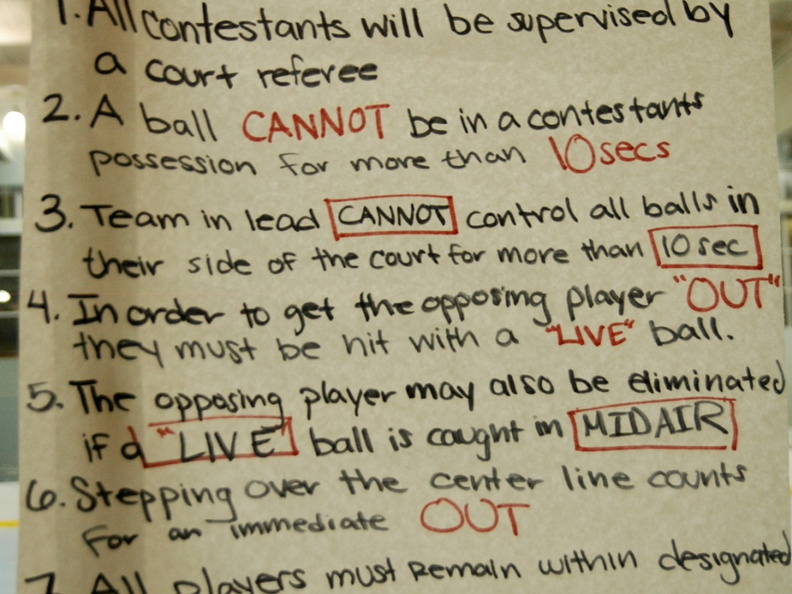 1. All contestants will be supervised by
a court referee
2. A ball CANNOT be in a contestants
possession for more than 10secs
3. Team in lead CANNOT control all balls in
their side of the court for more than 10 sec
4. In order to get the opposing player "OUT"
they must be hit with a "LIVE" ball.
5. The opposing player may also be eliminated
if a "LIVE" ball is caught in MIDAIR
6. Stepping over the center line counts
for an immediate OUT
7. All players must remain within designated